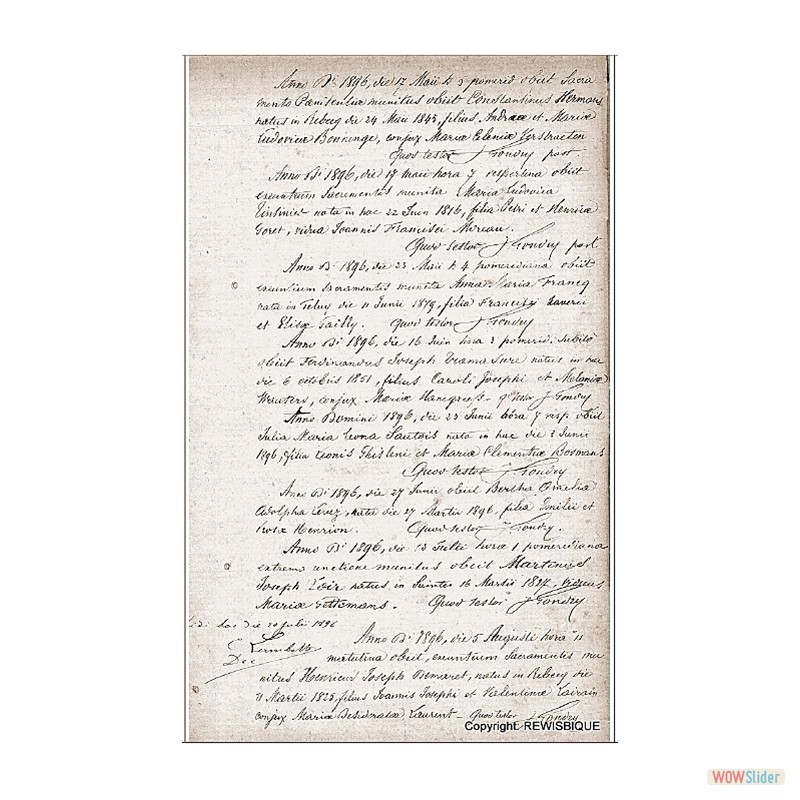 Anno Di 1896, die 17 Maii h 3 pomerid obiit Sacra
mento Pænitentiæ munitus obiit Constantinus Hermans
natus in Rebecq die 24 Maii 1843, filius Andreæ et Mariæ
Ludovicæ Bonnenge, conjux Mariæ Celeniæ Verstraeten
Quod testor J Gondry past.
Anno Di 1896, die 17 maii hora 7 vespertina obiit
exeuntium Sacramentis munita Maria Ludovica
nata in hac 22 Juin 1816, filia Petri et Henricæ
Goret, vidua Joannis Francisci Moreau.
Quod testor J Gondry past
Anno Di 1896, die 23 Maii h 4 pomeridiana obiit
exeuntium sacramentis munita Anna Maria Francq
nata in die 11 Junii 1879, filia Francisci Xaverii
et Elisæ Tailly. Quod testor J Gondry
Anno Di 1896, die 16 Juin hora 3 pomerid. subito
obiit Ferdinandus Joseph natus in hac
die 6 octobris 1851, filius Caroli Josephi et Melaniæ
Wauters, conjux Mariæ q testor J Gondry
Anno Domini 1896, die 23 Junii hora 7 vesp obiit
Julia Maria Leona Sautois nata in hac die 2 Junii
1896, filia Leonis Ghisleni et Mariæ Clementiæ Bosmans
Quod testor J Gondry
Anno Di 1896, die 27 Junii obiit Bertha Amelia
Adolpha nata die 27 Martii 1896, filia Emilii et
Rosæ Henrion. Quod testor J Gondry.
Anno Di 1896, die 13 Julii hora 1 pomeridiana
extrema unctione munitus obiit Martinus
Joseph natus in 16 Martii 1827, viduus
Mariæ Gettemans. Quod testor J Gondry
die 20 julii 1896
Dec
Anno Di 1896, die 5 Augusti hora 11
matutina obiit, exeuntium Sacramentis mu
nitus Henricus Joseph Demaret, natus in Rebecq die
11 Martii 1825, filius Joannis Josephi et Valentinæ Lairain
conjux Mariæ Desideratæ Laurent - Quod testor J Gondry
Copyright: REWISBIQUE
WOWSlider